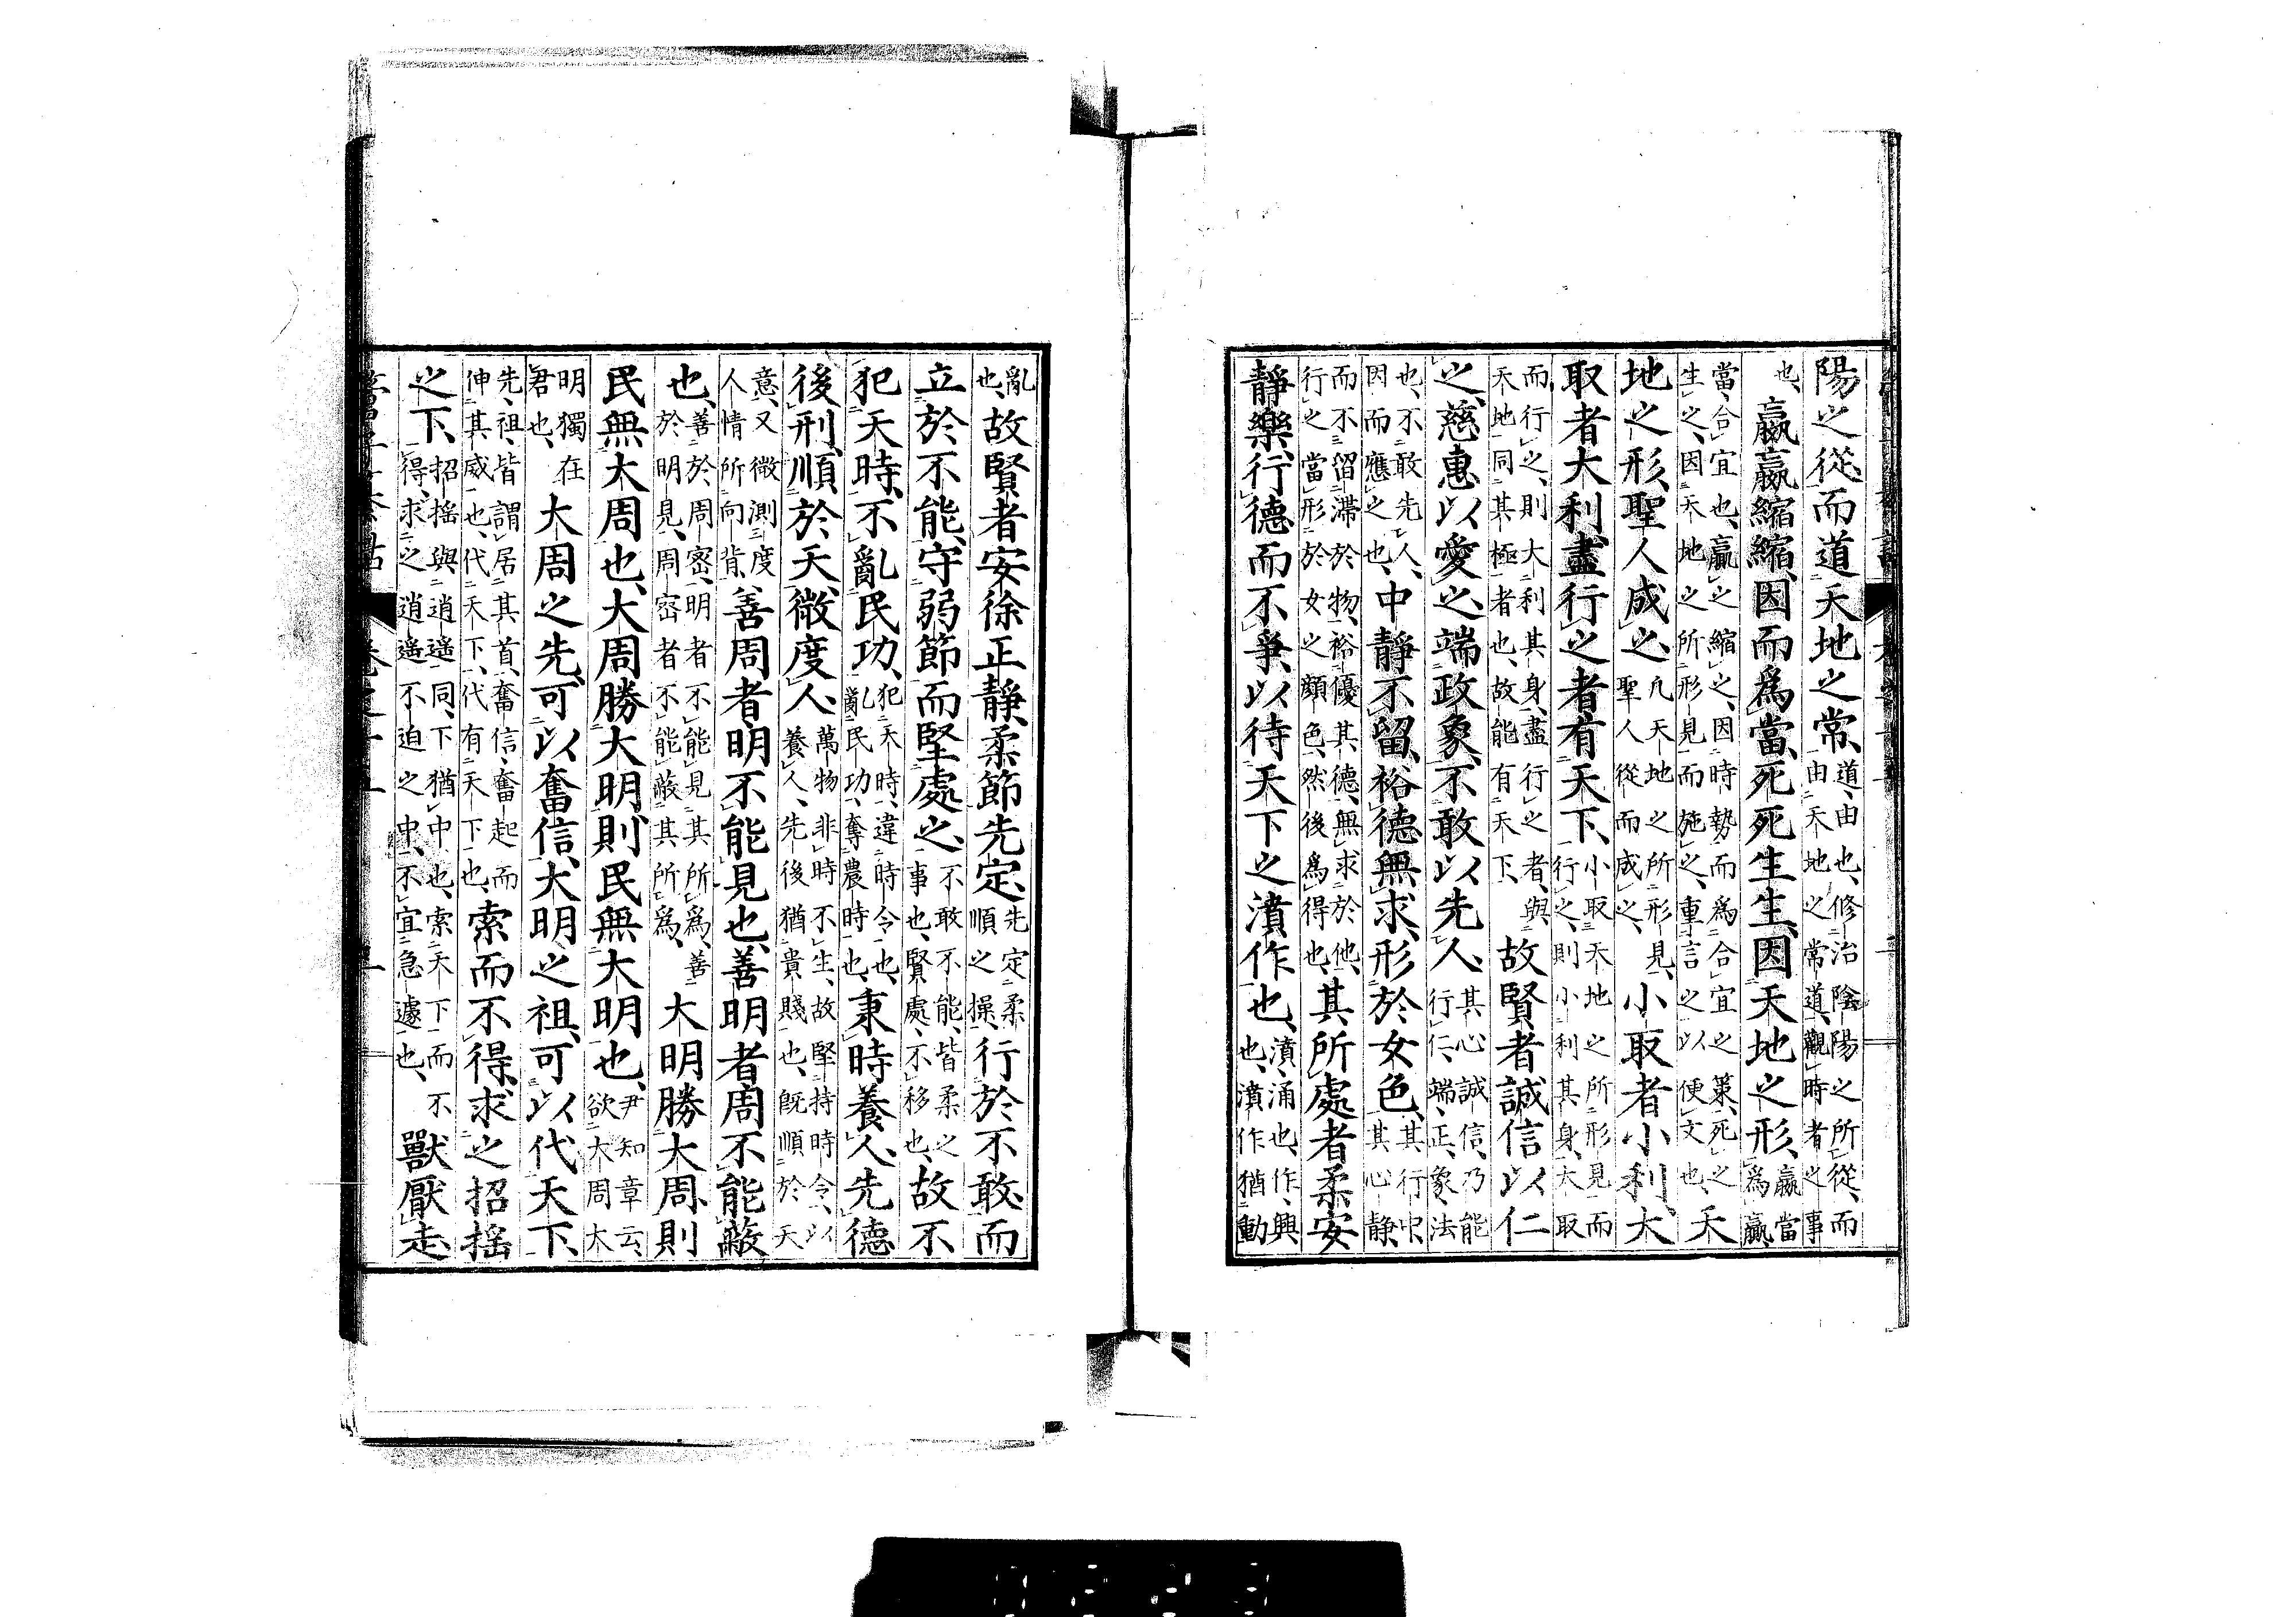 陽之從、而道天地之常、道、由也、修治陰陽之所從、而由天地之常道、觀時者之事
也、嬴嬴縮縮、因而爲當、死死生生、因天地之形、嬴當爲贏
當、合宜也、贏之縮之、因時勢而爲合宜之策、死之生之、因天地之所形見而施之、重言之以便文也、天
地之形、聖人成之、凡天地之所形見、聖人從而成之、小取者小利、大
取者大利、盡行之者有天下、小取天地之所形見而行之、則小利其身、大取
而行之、則大利其身、盡行之者、與天地同其極者也、故能有天下、故賢者誠信以仁
之、慈惠以愛之、端政象、不敢以先人、其心誠信、乃能行仁、端、正、象、法
也、不敢先人、因而應之也、中靜不留、裕德無求、形於女色、其行中、其心靜、
而不留滯於物、裕優其德、無求於他、行之當形於女之顏色、然後爲得也、其所處者柔安
靜樂、行德而不爭、以待天下之濆作也、濆、涌也、作、興也、濆作猶動
亂也、故賢者安徐正靜、柔節先定、先定柔順之操、行於不敢、而
立於不能、守弱節而堅處之、不敢不能、皆柔之事也、賢處、不移也、故不
犯天時、不亂民功、犯天時、違時令也、亂民功、奪農時也、秉時養人、先德
後刑、順於天、微度人、萬物非時不生、故堅持時令、以養人、先後猶貴賤也、既順於天
意、又微測度人情所向背、善周者、明不能見也、善明者、周不能蔽
也、善於周密、明者不能見其所爲、善於明見、周密者不能蔽其所爲、大明勝大周、則
民無大周也、大周勝大明、則民無大明也、尹知章云、欲大周大
明獨在君也、大周之先、可以奮信、大明之祖、可以代天下、
先、祖、皆謂居其首、奮信、奮起而伸其威也、代天下、代有天下也、索而不得、求之招搖
之下、招搖與逍遙同、下猶中也、索天下而不得、求之逍遙不迫之中、不宜急遽也、獸厭走、